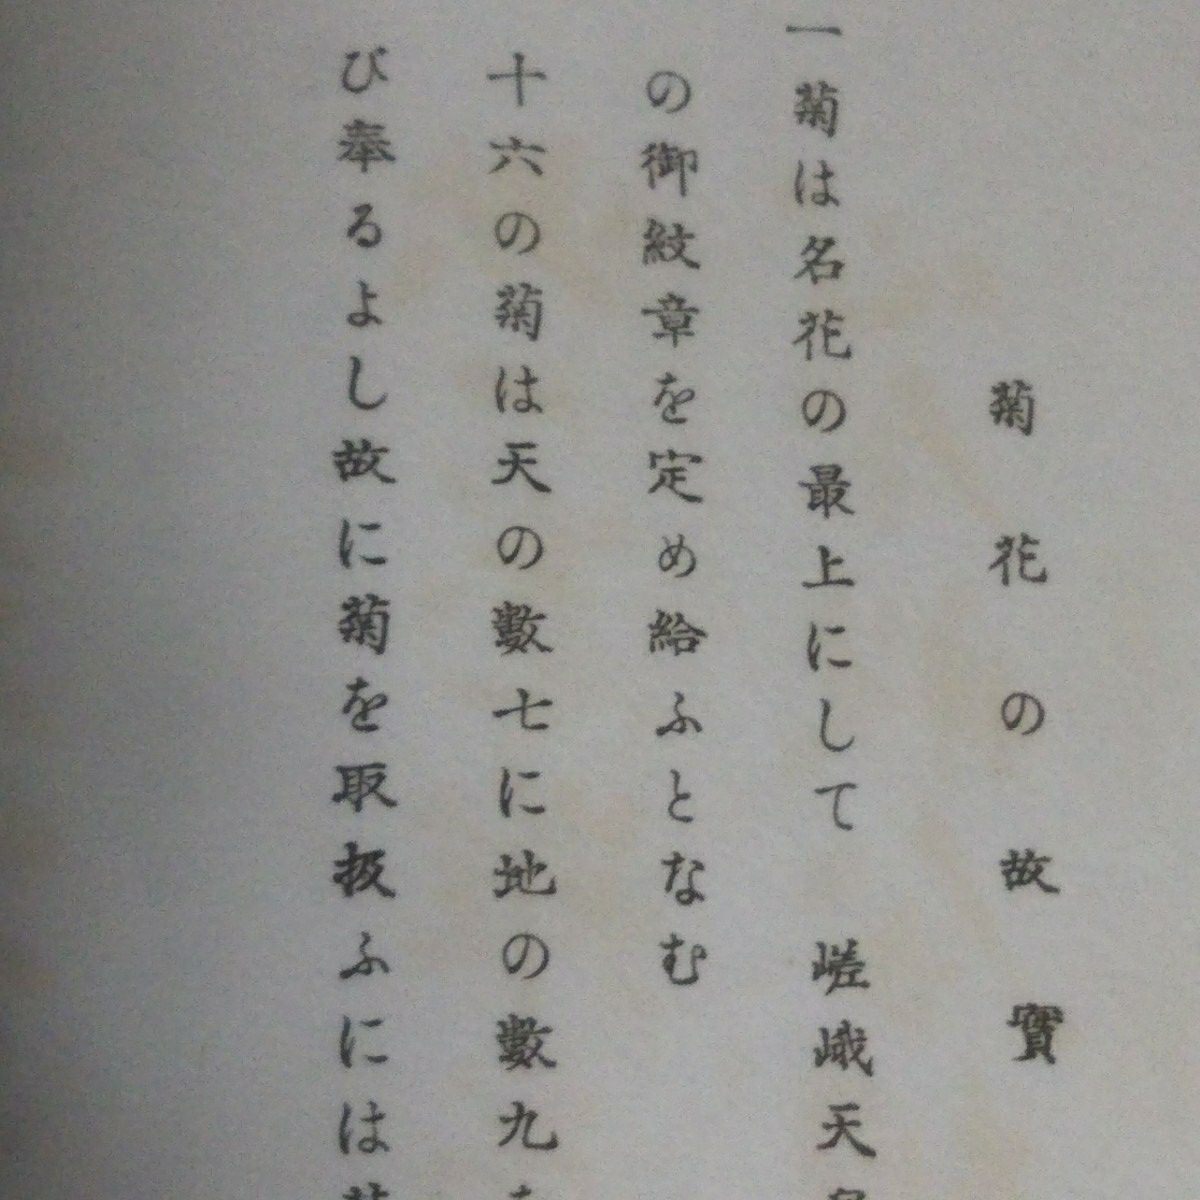 菊花の故實
一菊は名花の最上にして　嵯峨天
の御紋章を定め給ふとなむ
十六の菊は天の數七に地の數九
び奉るよし故に菊を取扱ふには